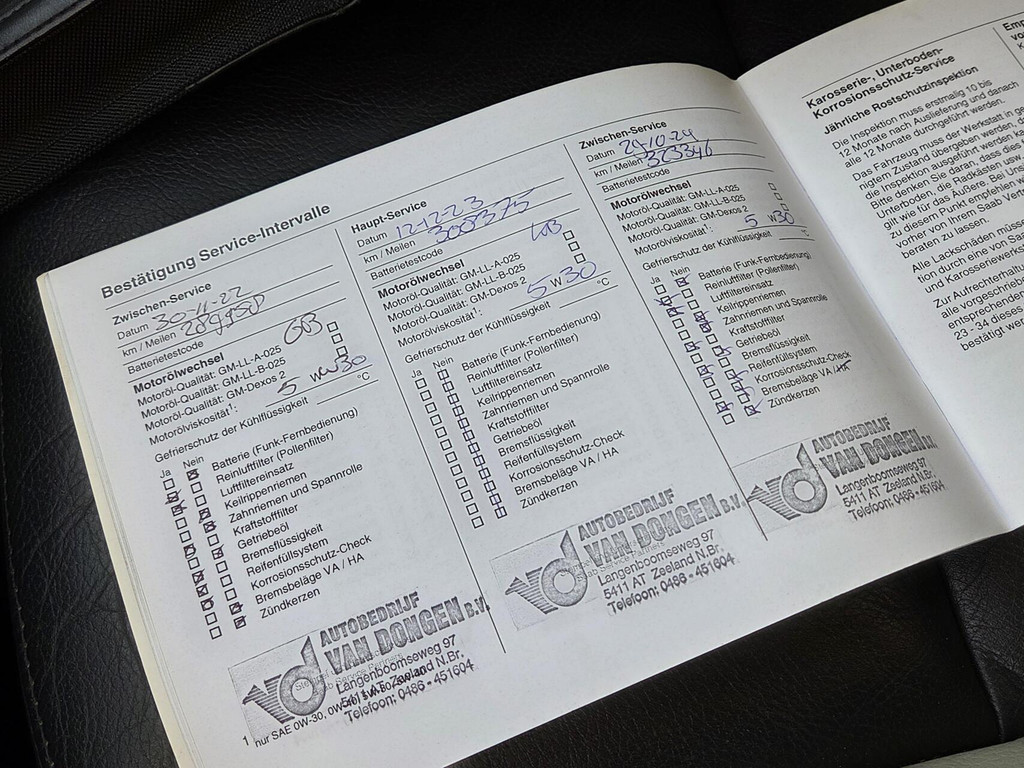 Bestätigung Service-Intervalle
Zwischen-Service
Datum 30-11-22
km / Meilen
Batterietestcode
Motorölwechsel
Motoröl-Qualität: GM-LL-A-025
Motoröl-Qualität: GM-LL-B-025
Motoröl-Qualität: GM-Dexos 2
Motorölviskosität¹: 5 W 30
Gefrierschutz der Kühlflüssigkeit °C
Ja Nein
Batterie (Funk-Fernbedienung)
Reinluftfilter (Pollenfilter)
Luftfiltereinsatz
Keilrippenriemen
Zahnriemen und Spannrolle
Kraftstofffilter
Getriebeöl
Bremsflüssigkeit
Reifenfüllsystem
Korrosionsschutz-Check
Bremsbeläge VA / HA
Zündkerzen
AUTOBEDRIJF
VAN DONGEN B.V.
Langenboomseweg 97
5411 AT Zeeland N.Br.
Telefoon: 0486 - 451604
1 nur SAE 0W-30, 0W-40
Haupt-Service
Datum 12-12-23
km / Meilen 308375
Batterietestcode
Motorölwechsel
Motoröl-Qualität: GM-LL-A-025
Motoröl-Qualität: GM-LL-B-025
Motoröl-Qualität: GM-Dexos 2
Motorölviskosität¹: 5 W 30
Gefrierschutz der Kühlflüssigkeit °C
Ja Nein
Batterie (Funk-Fernbedienung)
Reinluftfilter (Pollenfilter)
Luftfiltereinsatz
Keilrippenriemen
Zahnriemen und Spannrolle
Kraftstofffilter
Getriebeöl
Bremsflüssigkeit
Reifenfüllsystem
Korrosionsschutz-Check
Bremsbeläge VA / HA
Zündkerzen
AUTOBEDRIJF
VAN DONGEN B.V.
Langenboomseweg 97
5411 AT Zeeland N.Br.
Telefoon: 0486 - 451604
Zwischen-Service
Datum 29-10-24
km / Meilen 323346
Batterietestcode
Motorölwechsel
Motoröl-Qualität: GM-LL-A-025
Motoröl-Qualität: GM-LL-B-025
Motoröl-Qualität: GM-Dexos 2
Motorölviskosität¹: 5 W 30
Gefrierschutz der Kühlflüssigkeit °C
Ja Nein
Batterie (Funk-Fernbedienung)
Reinluftfilter (Pollenfilter)
Luftfiltereinsatz
Keilrippenriemen
Zahnriemen und Spannrolle
Kraftstofffilter
Getriebeöl
Bremsflüssigkeit
Reifenfüllsystem
Korrosionsschutz-Check
Bremsbeläge VA / HA
Zündkerzen
AUTOBEDRIJF
VAN DONGEN B.V.
Langenboomseweg 97
5411 AT Zeeland N.Br.
Telefoon: 0486 - 451604
Karosserie-, Unterboden-
Korrosionsschutz-Service
Jährliche Rostschutzinspektion
Die Inspektion muss erstmalig 10 bis
12 Monate nach Auslieferung und danach
alle 12 Monate durchgeführt werden.
Das Fahrzeug muss der Werkstatt in
nigtem Zustand übergeben werden
die Inspektion ausgeführt werden
Bitte denken Sie daran, dass dies
Unterboden, die Radkästen usw.
gilt wie für das Äußere. Bei
zu diesem Punkt empfehlen wir
vorher von Ihrem Saab
beraten zu lassen.
Alle Lackschäden
tion durch eine von
und Karosseriewerks
Zur
alle vorgeschriebe
entsprechenden
23 - 34 dieses
bestätigt